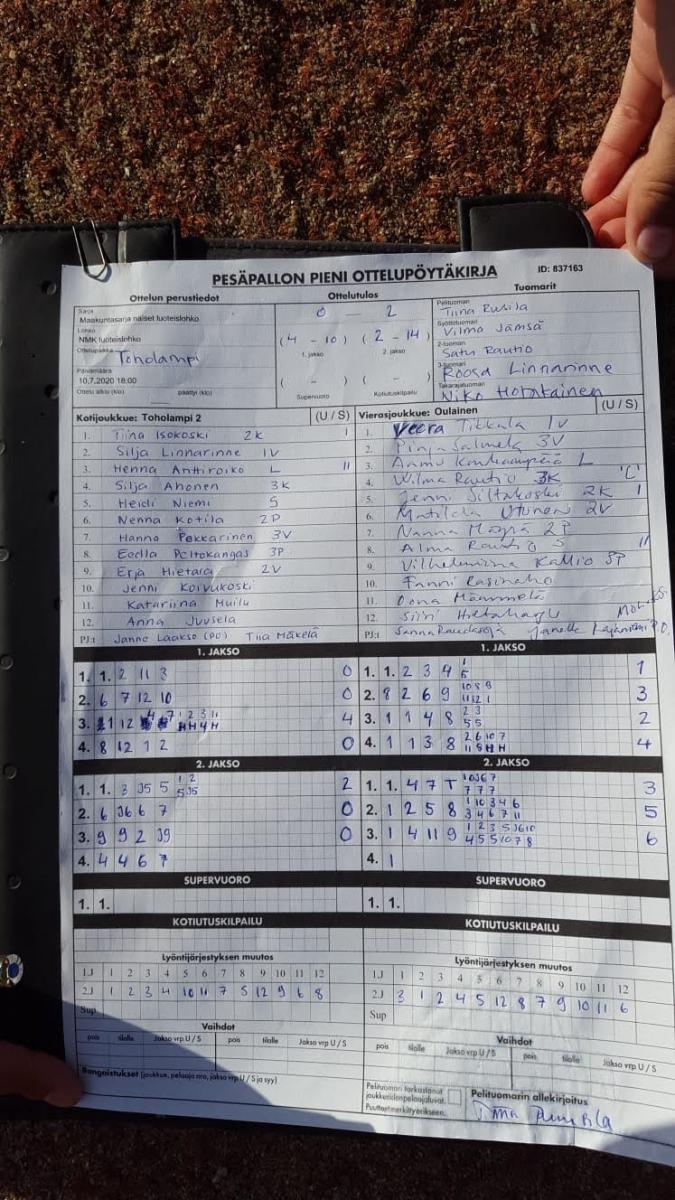 PESÄPALLON PIENI OTTELUPÖYTÄKIRJA
ID: 837163
Ottelun perustiedot
Sarja
Maakuntasarja naiset tuoteislohko
Lohko
NMK tuoteislohko
Ottelupaikka Toholampi
Päivämäärä
10.7.2020 18:00
Ottelu alkoi (klo) päättyi (klo)
Ottelutulos
0 – 2
(4 – 10) (2 – 14)
1. jakso 2. jakso
( – ) ( – )
Supervuoro Kotiutuskilpailu
Tuomarit
Pelituomari
Tiina Rusila
Syöttötuomari
Vilma Jämsä
2-tuomari
Satu Rautio
3-tuomari
Roosa Linnarinne
Takarajatuomari
Niko Hotakainen
Kotijoukkue: Toholampi 2 (U / S)
1. Tiina Isokoski 2K I
2. Silja Linnarinne 1V
3. Henna Anttiroiko L II
4. Silja Ahonen 3K
5. Heidi Niemi S
6. Nenna Kotila 2P
7. Hanna Pekkarinen 3V
8. Eeella Peltokangas 3P
9. Erja Hietala 2V
10. Jenni Koivukoski
11. Katariina Muilu
12. Anna Juusela
PJ:t Janne Laakso (PO) Tiia Mäkelä
Vierasjoukkue: Oulainen (U / S)
1. Veera Tikkala 1V
2. Pinja Salmela 3V
3. L
4. Wilma Rautio 3K "C"
5. Jenni Siltakoski 2K I
6. Matilda Utunen 2V
7. Nanna 2P
8. Alma Rautio S II
9. Vilhelmiina Kallio 3P
10. Fanni Rasinaho
11. Oona Mämmelä
12. Siiri
PJ:t Sanna Janette
1. JAKSO
1. 1. 2 11 3 0
2. 6 7 12 10 0
3. 4
4. 8 12 1 2 0
2. JAKSO
1. 1. 3 J5 5 1 2 2
5 J5
2. 6 J6 6 7 0
3. 9 9 2 J9 0
4. 4 4 6 7
SUPERVUORO
1. 1.
KOTIUTUSKILPAILU
Lyöntijärjestyksen muutos
1.J 1 2 3 4 5 6 7 8 9 10 11 12
2.J 1 2 3 4 10 11 7 5 12 9 6 8
Sup
Vaihdot
pois tilalle Jakso vrp U / S pois tilalle Jakso vrp U / S
Rangaistukset (joukkue, pelaaja nro, jakso vrp U / S ja syy)
1. JAKSO
1. 1. 2 3 4 1 1
5
2. 8 2 6 9 10 8 9 3
11 12 1
3. 1 1 4 8 2 3 2
5 5
4. 1 1 3 8 2 6 10 7 4
2. JAKSO
1. 1. 4 7 T 3
7 7 7
2. 1 2 5 8 1 10 3 4 6 5
3 4 6 7 11
3. 1 4 11 9 1 2 3 5 J6 10 6
4 5 5 10 7 8
4. 1
SUPERVUORO
1. 1.
KOTIUTUSKILPAILU
Lyöntijärjestyksen muutos
1.J 1 2 3 4 5 6 7 8 9 10 11 12
2.J 3 1 2 4 5 12 8 7 9 10 11 6
Sup
Vaihdot
pois tilalle Jakso vrp U / S pois tilalle Jakso vrp U / S
Pelituomari tarkastanut
joukkueiden pelaajaluvat.
Puutteet merkitty erikseen.
Pelituomarin allekirjoitus